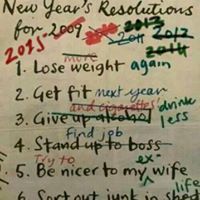 New Year's Resolutions
for 2009 2010 2013
2015 2011 2012
2014
more
1. Lose weight again
2. Get fit next year
and cigarettes! drink
3. Give up alcohol less
find job
4. Stand up to boss
Try to ex-
5. Be nicer to my wife
life
6. Sort out junk in shed